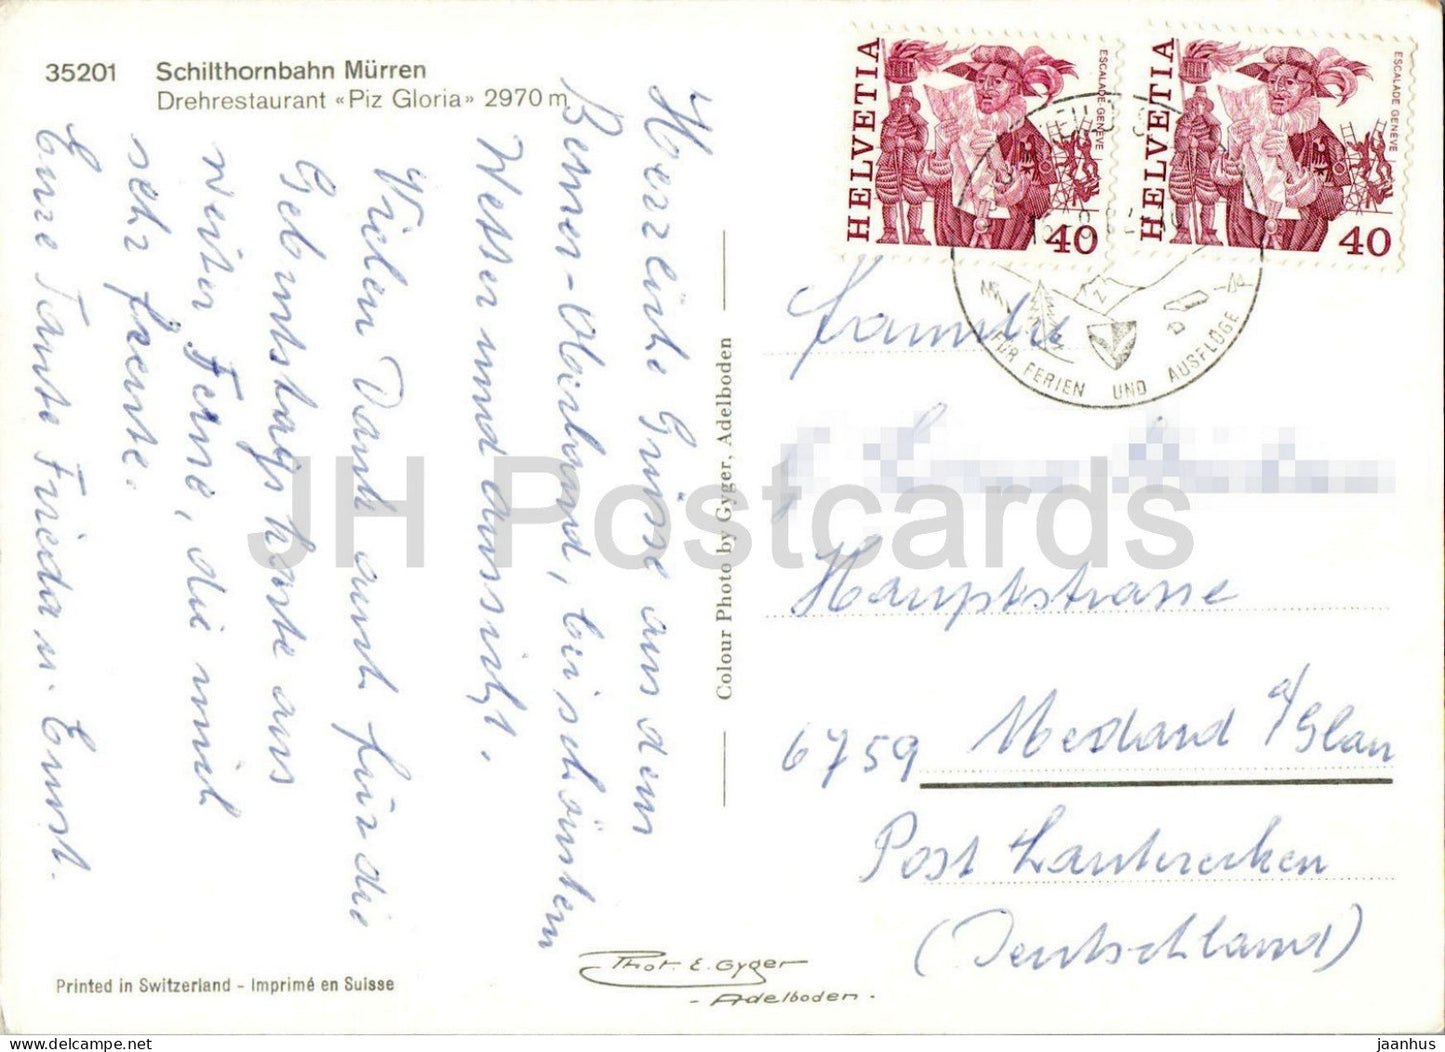 35201 Schilthornbahn Mürren
Drehrestaurant «Piz Gloria» 2970 m
Herzliche Grüsse aus dem
Berner-Oberland, bei schönstem
Wetter und aussicht.
Vielen Dank auch für die
Geburtstagskarte aus
weiter Ferne, die mich
sehr freute.
Eure Tante Frieda u. Ernst.
Colour Photo by Gyger, Adelboden
HELVETIA
ESCALADE GENÈVE
40
HELVETIA
ESCALADE GENÈVE
40
FÜR FERIEN UND AUSFLÜGE
Familie
Hauptstrasse
6759 Medard a/Glan
Post Lauterecken
(Deutschland)
Printed in Switzerland - Imprimé en Suisse
Phot. E. Gyger
- Adelboden -
JH Postcards
jaanhus | hipstamp.com